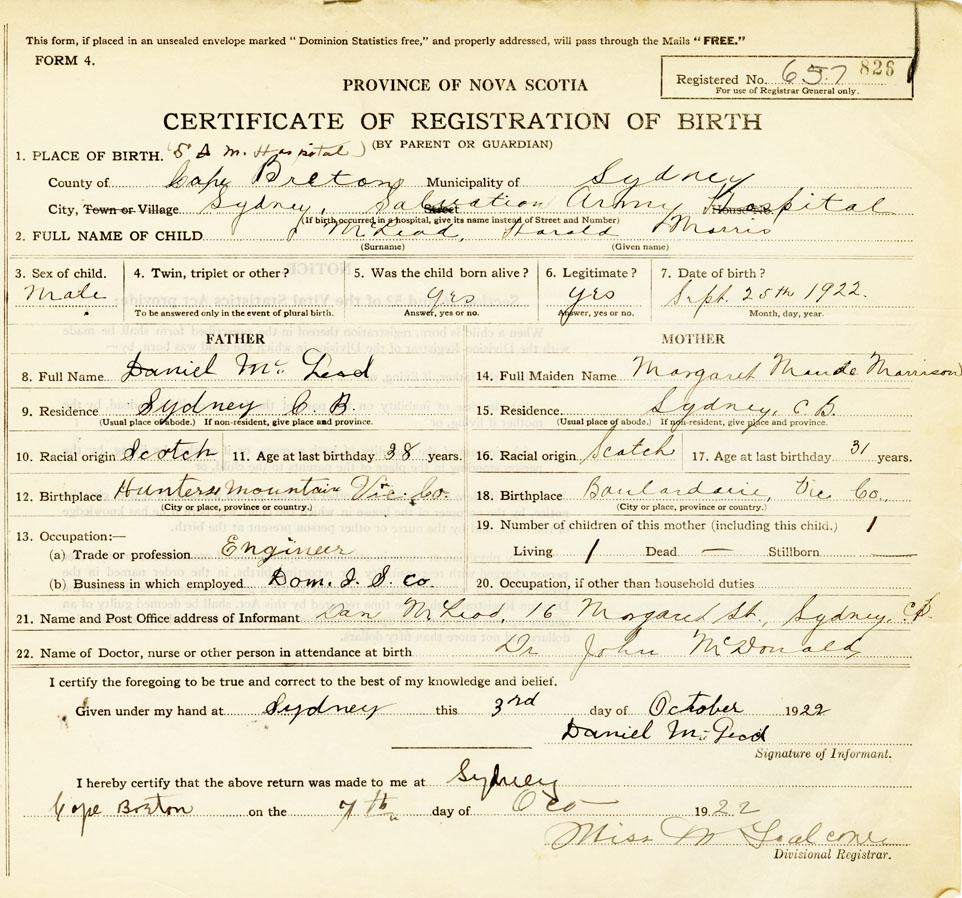 This form, if placed in an unsealed envelope marked "Dominion Statistics free," and properly addressed, will pass through the Mails "FREE."
FORM 4.
Registered No. 657 826
For use of Registrar General only.
PROVINCE OF NOVA SCOTIA
CERTIFICATE OF REGISTRATION OF BIRTH
(BY PARENT OR GUARDIAN)
1. PLACE OF BIRTH. (S A M. Hospital)
County of Cape Breton Municipality of Sydney
City, Town or Village Sydney, Street Salvation Army House No. Hospital
(If birth occurred in a hospital, give its name instead of Street and Number)
2. FULL NAME OF CHILD McLeod, Harold Morris
(Surname) (Given name)
3. Sex of child. 4. Twin, triplet or other? 5. Was the child born alive? 6. Legitimate? 7. Date of birth?
Male yes yes Sept. 25th 1922.
To be answered only in the event of plural birth. Answer, yes or no. Answer, yes or no. Month, day, year.
FATHER MOTHER
8. Full Name Daniel Mc Leod 14. Full Maiden Name Margaret Maude Morrison
9. Residence Sydney C. B. 15. Residence. Sydney, C B.
(Usual place of abode.) If non-resident, give place and province. (Usual place of abode.) If non-resident, give place and province.
10. Racial origin Scotch 11. Age at last birthday 38 years. 16. Racial origin Scotch 17. Age at last birthday 31 years.
12. Birthplace Hunters Mountain Vic. Co. 18. Birthplace Boulardarie, Vic Co.
(City or place, province or country.) (City or place, province or country.)
13. Occupation:— 19. Number of children of this mother (including this child.) 1
(a) Trade or profession Engineer Living 1 Dead — Stillborn —
(b) Business in which employed Dom. I. S. Co. 20. Occupation, if other than household duties
21. Name and Post Office address of Informant Dan McLeod, 16 Margaret St., Sydney, C.B.
22. Name of Doctor, nurse or other person in attendance at birth Dr John McDonald
I certify the foregoing to be true and correct to the best of my knowledge and belief.
Given under my hand at Sydney this 3rd day of October 1922
Daniel Mc Leod
Signature of Informant.
I hereby certify that the above return was made to me at Sydney
Cape Breton on the 7th day of Oct 1922
Miss M
Divisional Registrar.